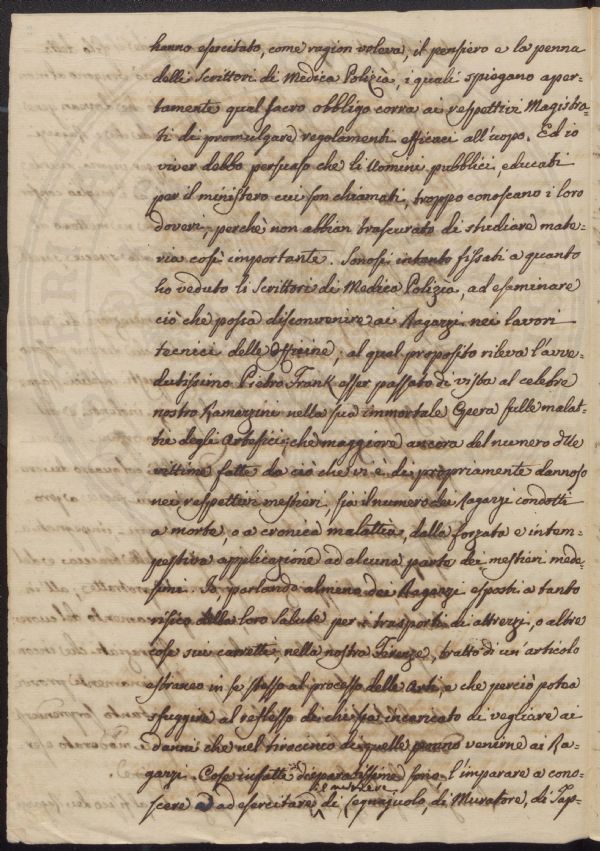 hanno esercitato, come ragion voleva, il pensiero e la penna
delli Scrittori di Medica Polizia, i quali spiegano aper-
tamente qual sacro obbligo corra ai respettivi Magistra-
ti di promulgare regolamenti efficaci all'uopo. Ed io
viver debbo persuaso che li Uomini pubblici, educati
per il ministero cui son chiamati, troppo conoscano i loro
doveri, perchè non abbian trascurato di studiare mate-
ria così importante. Sonosi intanto fissati a quanto
ho veduto li Scrittori di Medica Polizia, ad esaminare
ciò che possa disconvenire ai Ragazzi nei lavori
tecnici delle Officine; al qual proposito rileva l'avve-
dutissimo Pietro Frank esser passato di vista al celebre
nostro Ramazzini nella sua immortale Opera sulle malat-
tie degli Artefici, che maggiore ancora del numero delle
vittime fatte da ciò che vi è di propriamente dannoso
nei respettivi mestieri, sia il numero dei Ragazzi condotti
a morte, o a cronica malattia, dalla forzata e intem-
pestiva applicazione ad alcuna parte dei mestieri mede-
simi. Io, parlando almeno dei Ragazzi esposti a tanto
risico della loro Salute per i trasporti di attrezzi, o altre
cose sui carretti, nella nostra Firenze, tratto di un articolo
estraneo in se stesso al processo delle Arti, e che perciò potea
sfuggire al riflesso di chi sia incaricato di vegliare ai
danni che nel tirocinio di quelle ponno venirne ai Ra-
gazzi. Cose infatti disparatissime sono, l'imparare a cono-
scere ed ad esercitare il mestiere di Legnajuolo, di Muratore, di Tap-